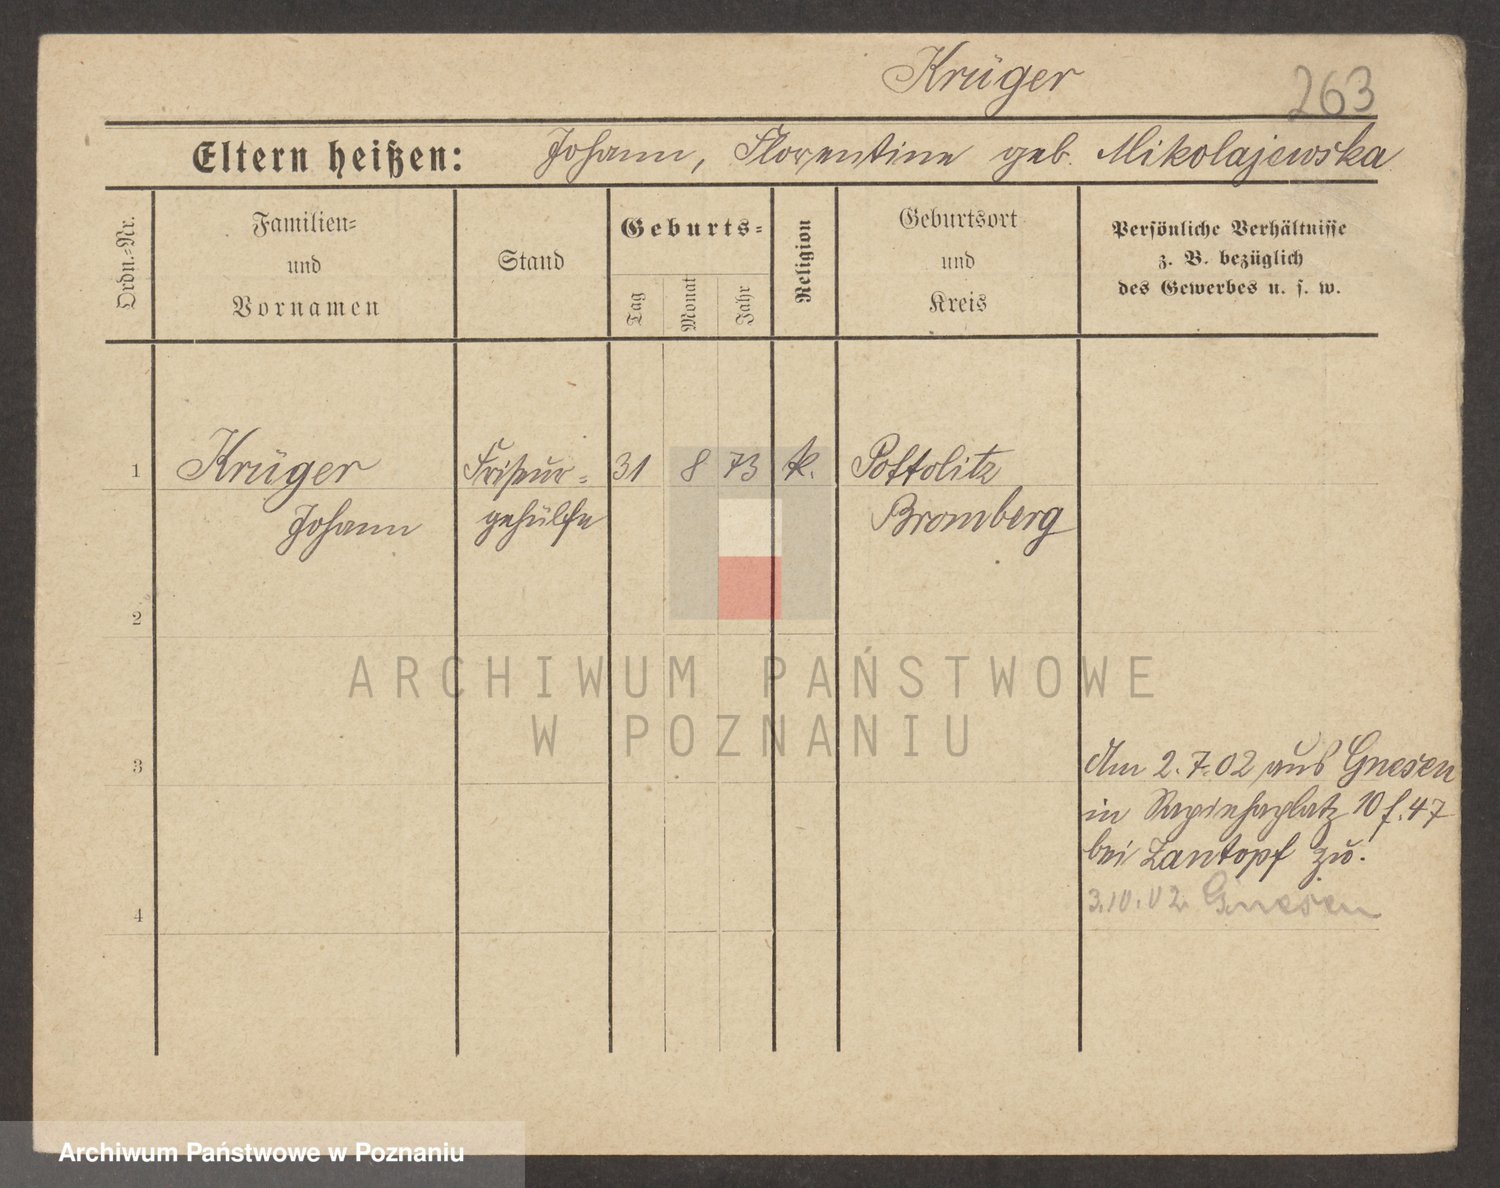 Krüger
263
Eltern heißen: Johann, Florentine geb. Mikolajewska
Ordn.-Nr.
Familien-
und
Vornamen
Stand
Geburts-
Tag
Monat
Jahr
Religion
Geburtsort
und
Kreis
Persönliche Verhältnisse
z. B. bezüglich
des Gewerbes u. s. w.
1 Krüger Friseur- 31 8 73 k. Pottolitz
Johann gehülfe Bromberg
2
ARCHIWUM PAŃSTWOWE
W POZNANIU
3
Am 2.7.02 aus Gnesen
in Sapiehaplatz 10 f. 47
bei Zantopf zu.
4
3.10.02 Gnesen
Archiwum Państwowe w Poznaniu